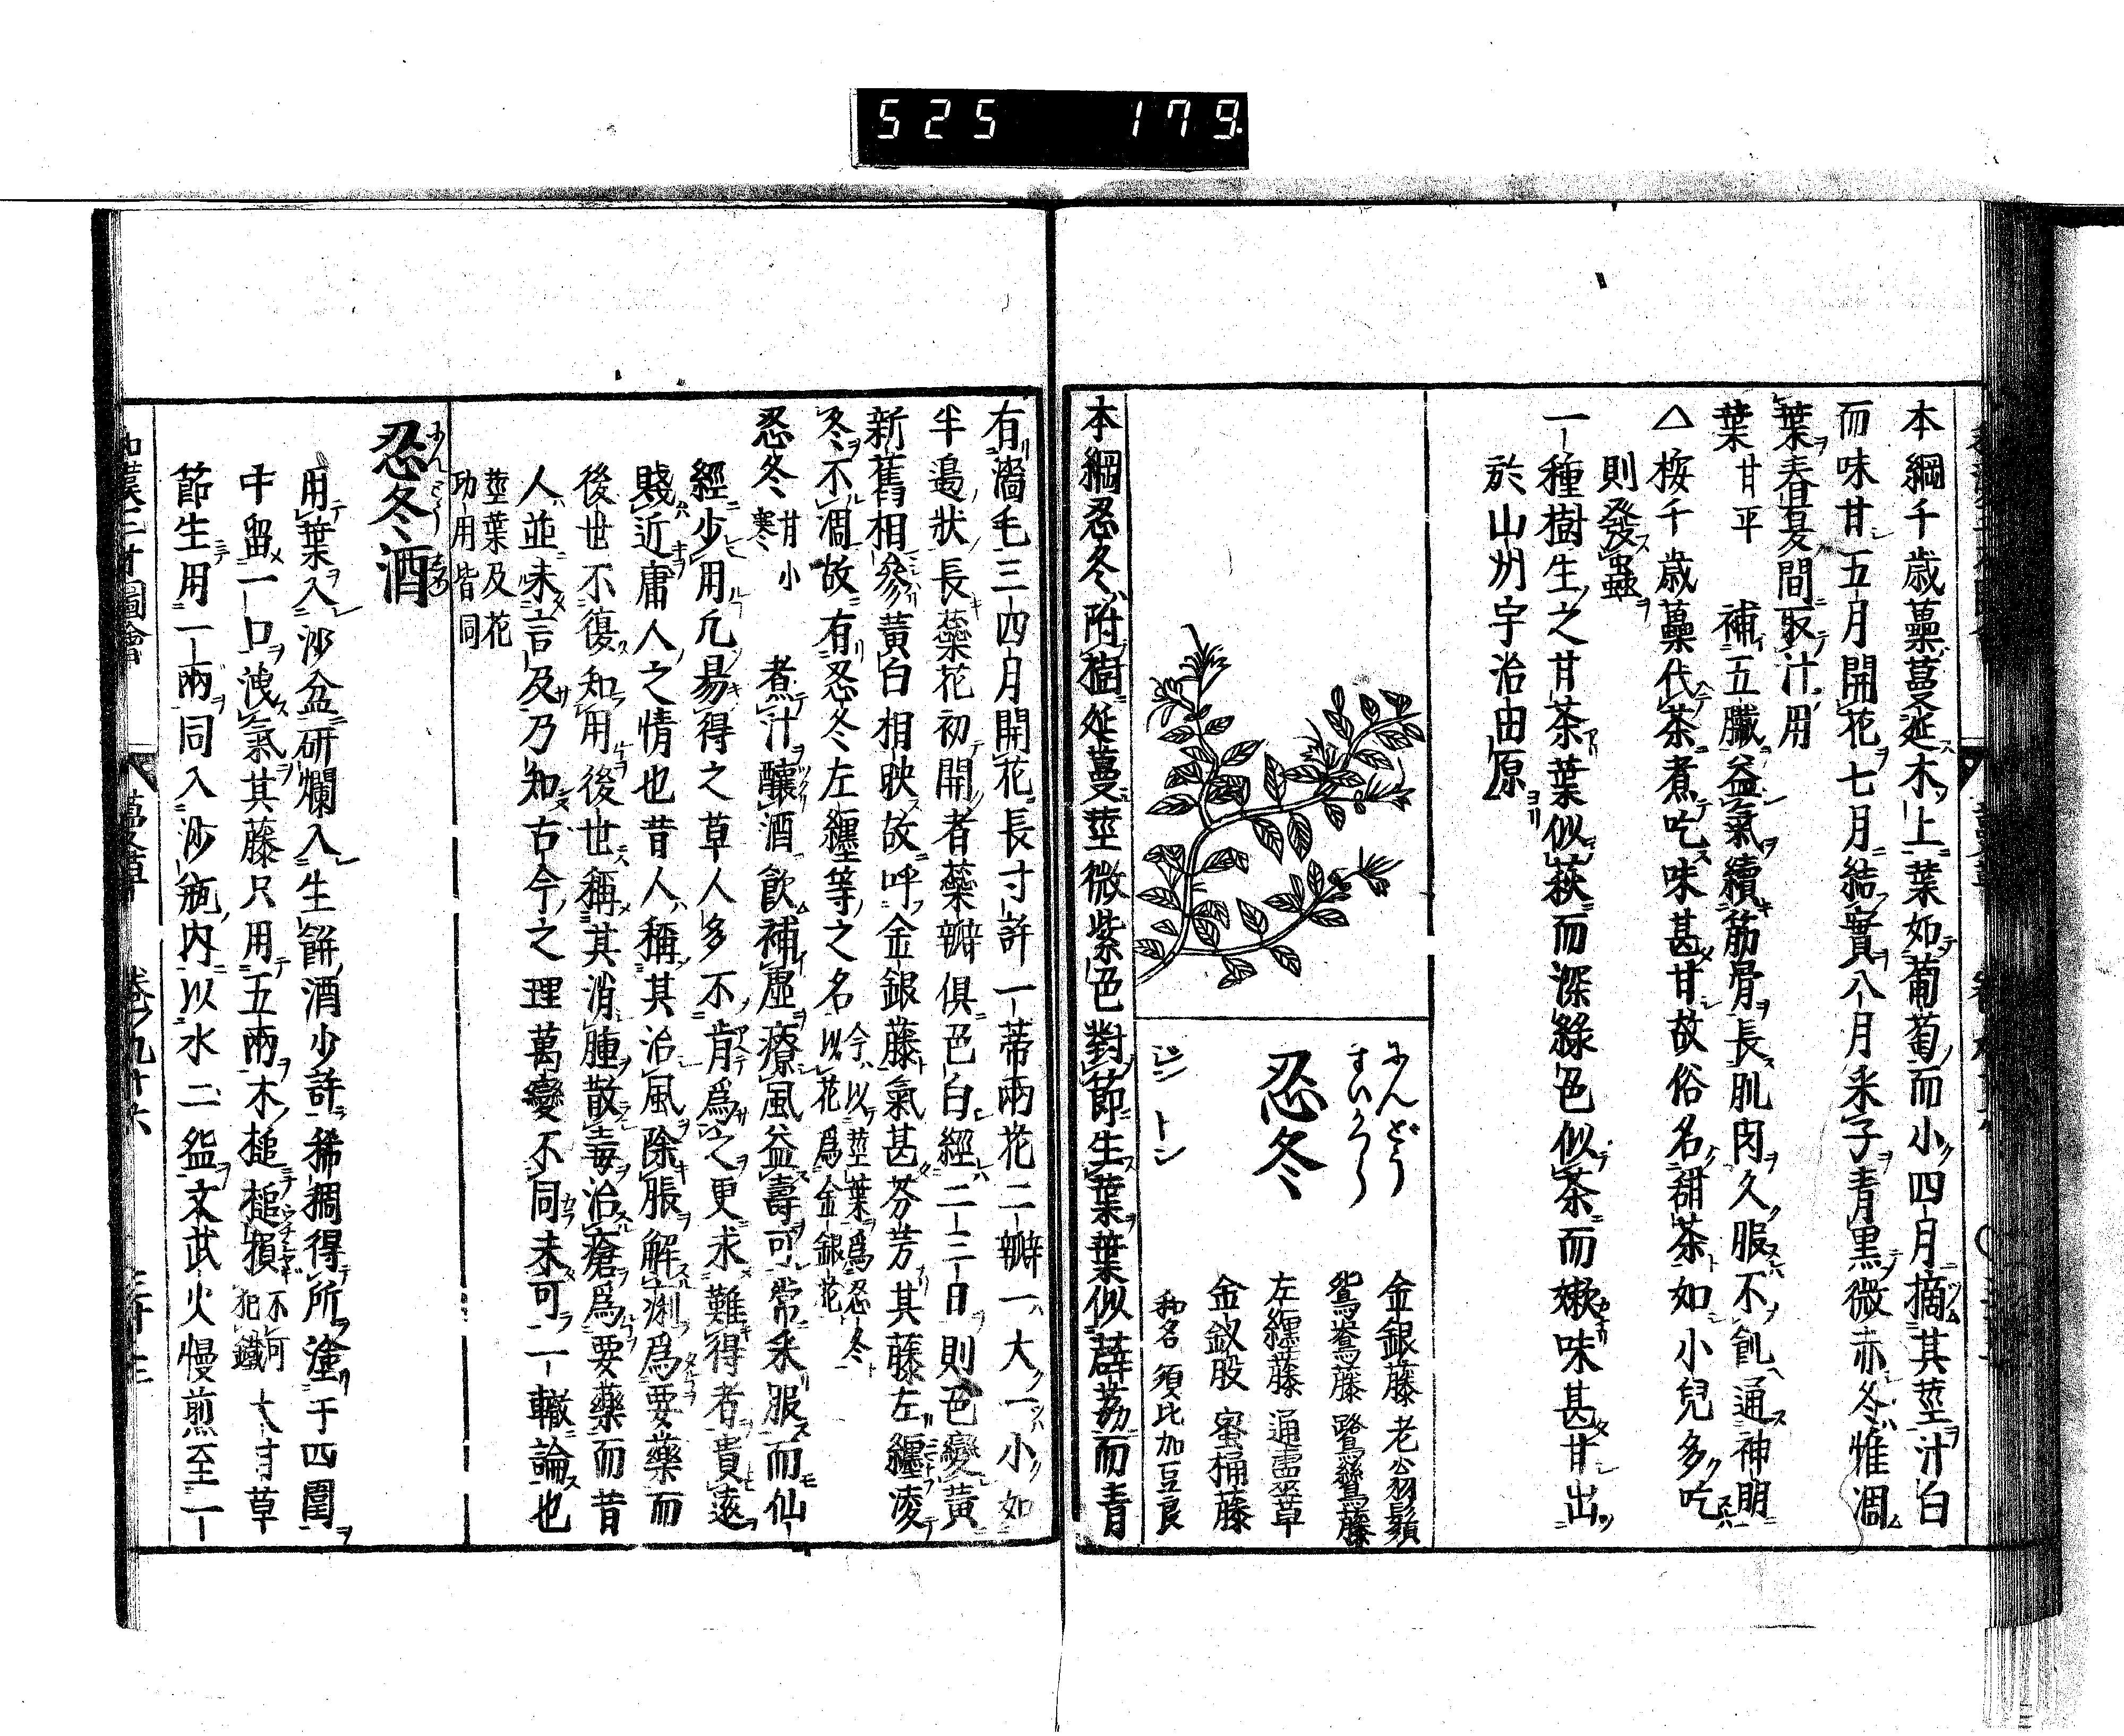 525 179
本綱千歳虆蔓延木上葉如葡萄而小四月摘其莖汁白
而味甘五月開花七月結實八月采子青黒微赤冬惟凋
葉春夏間取汁用
葉甘平 補五臟益氣續筋骨長肌肉久服不飢通神明
△按千歳虆代茶煮吃味甚甘故俗名甜茶如小兒多吃
則發蟲
一種樹生之甘茶葉似萩而深綠色似茶而嫩味甚甘出
於山州宇治田原
にんどう
すいかつら
忍冬
ジントン
金銀藤 老翁鬚
鴛鴦藤 鷺鷥藤
左纒藤 通靈草
金釵股 蜜桶藤
和名 須比加豆良
本綱忍冬附樹延蔓莖微紫色對節生葉葉似薜荔而青
有濇毛三四月開花長寸許一蒂兩花二瓣一大一小如
半邉狀長蘂花初開者蘂瓣俱色白經二三日則色變黃
新舊相參黃白相映故呼金銀藤氣甚芬芳其藤左纒凌
冬不凋故有忍冬左纒等之名 今以莖葉爲忍冬
以花爲金銀花
忍冬 甘小寒 煮汁釀酒飲補虛療風益壽可常采服而仙
經少用凡昜得之草人多不肯爲之更求難得者貴遠
賤近庸人之情也昔人稱其治風除脹解痢爲要藥而
後世不復知用後世稱其消腫散毒治瘡爲要藥而昔
人並未言及乃知古今之理萬變不同未可一轍論也
莖葉及花
功用皆同
にんどうしゆ
忍冬酒
用葉入沙盆研爛入生餅酒少許稀稠得所塗于四圍
中留一口洩氣其藤只用五兩木槌槌損 不可犯鐵 大甘草
節生用一兩同入沙瓶内以水二盌文武火慢煎至一
和漢三才圖會 蔓草 卷之九十六